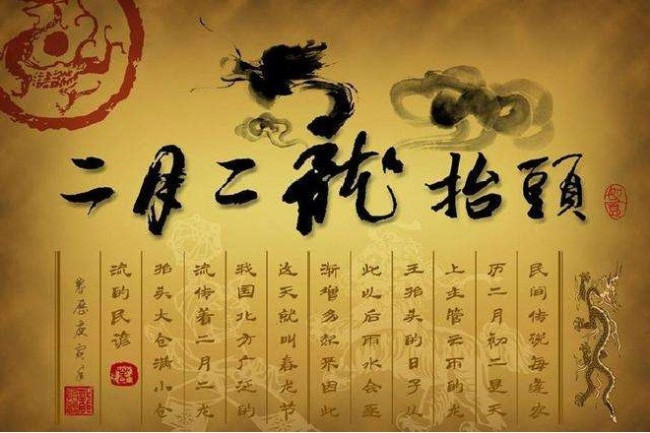 二月二龍抬頭
民间传说每逢农
历二月初二是天
上主管云雨的龙
王抬头的日子从
此以后雨水会逐
渐增多起来因此
这天就叫春龙节
我国北方广泛的
流传着二月二龙
抬头大仓满小仓
流的民谚